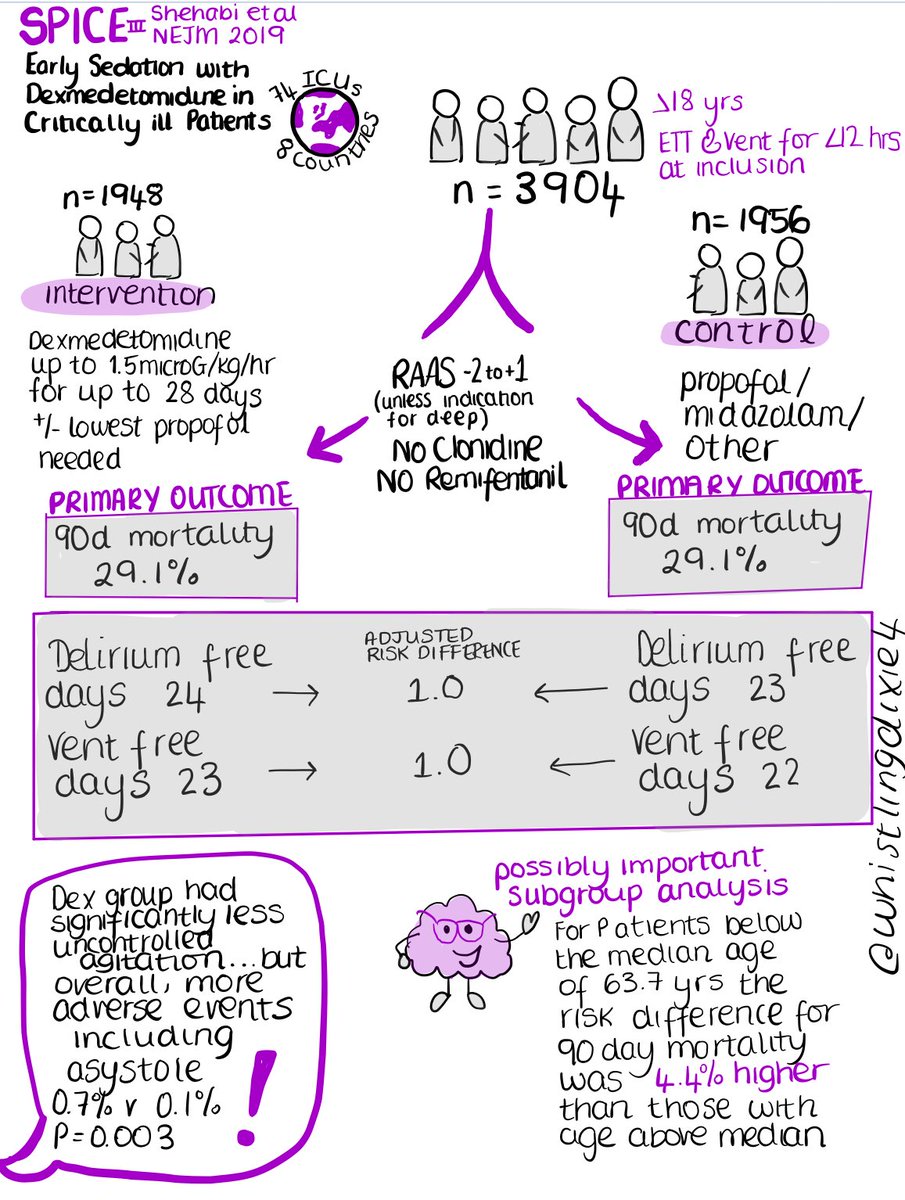 SPICE III Shehabi et al
NEJM 2019
Early Sedation with
Dexmedetomidine in
Critically ill Patients
74 ICUs
8 countries
n = 3904
>18 yrs
ETT & vent for <12 hrs
at inclusion
n=1948
intervention
Dexmedetomidine
up to 1.5microG/kg/hr
for up to 28 days
+/- lowest propofol
needed
RAAS -2 to +1
(unless indication
for deep)
NO Clonidine
NO Remifentanil
n= 1956
control
propofol/
midazolam/
other
PRIMARY OUTCOME
90d mortality
29.1%
PRIMARY OUTCOME
90d mortality
29.1%
Delirium free
days 24
ADJUSTED
RISK DIFFERENCE
1.0
Delirium free
days 23
vent free
days 23
1.0
vent free
days 22
@whistlingdixie4
Dex group had
significantly less
uncontrolled
agitation...but
overall, more
adverse events
including
asystole
0.7% v 0.1%
P=0.003
!
possibly important
subgroup analysis
For Patients below
the median age
of 63.7 yrs the
risk difference for
90 day mortality
was 4.4% higher
than those with
age above median